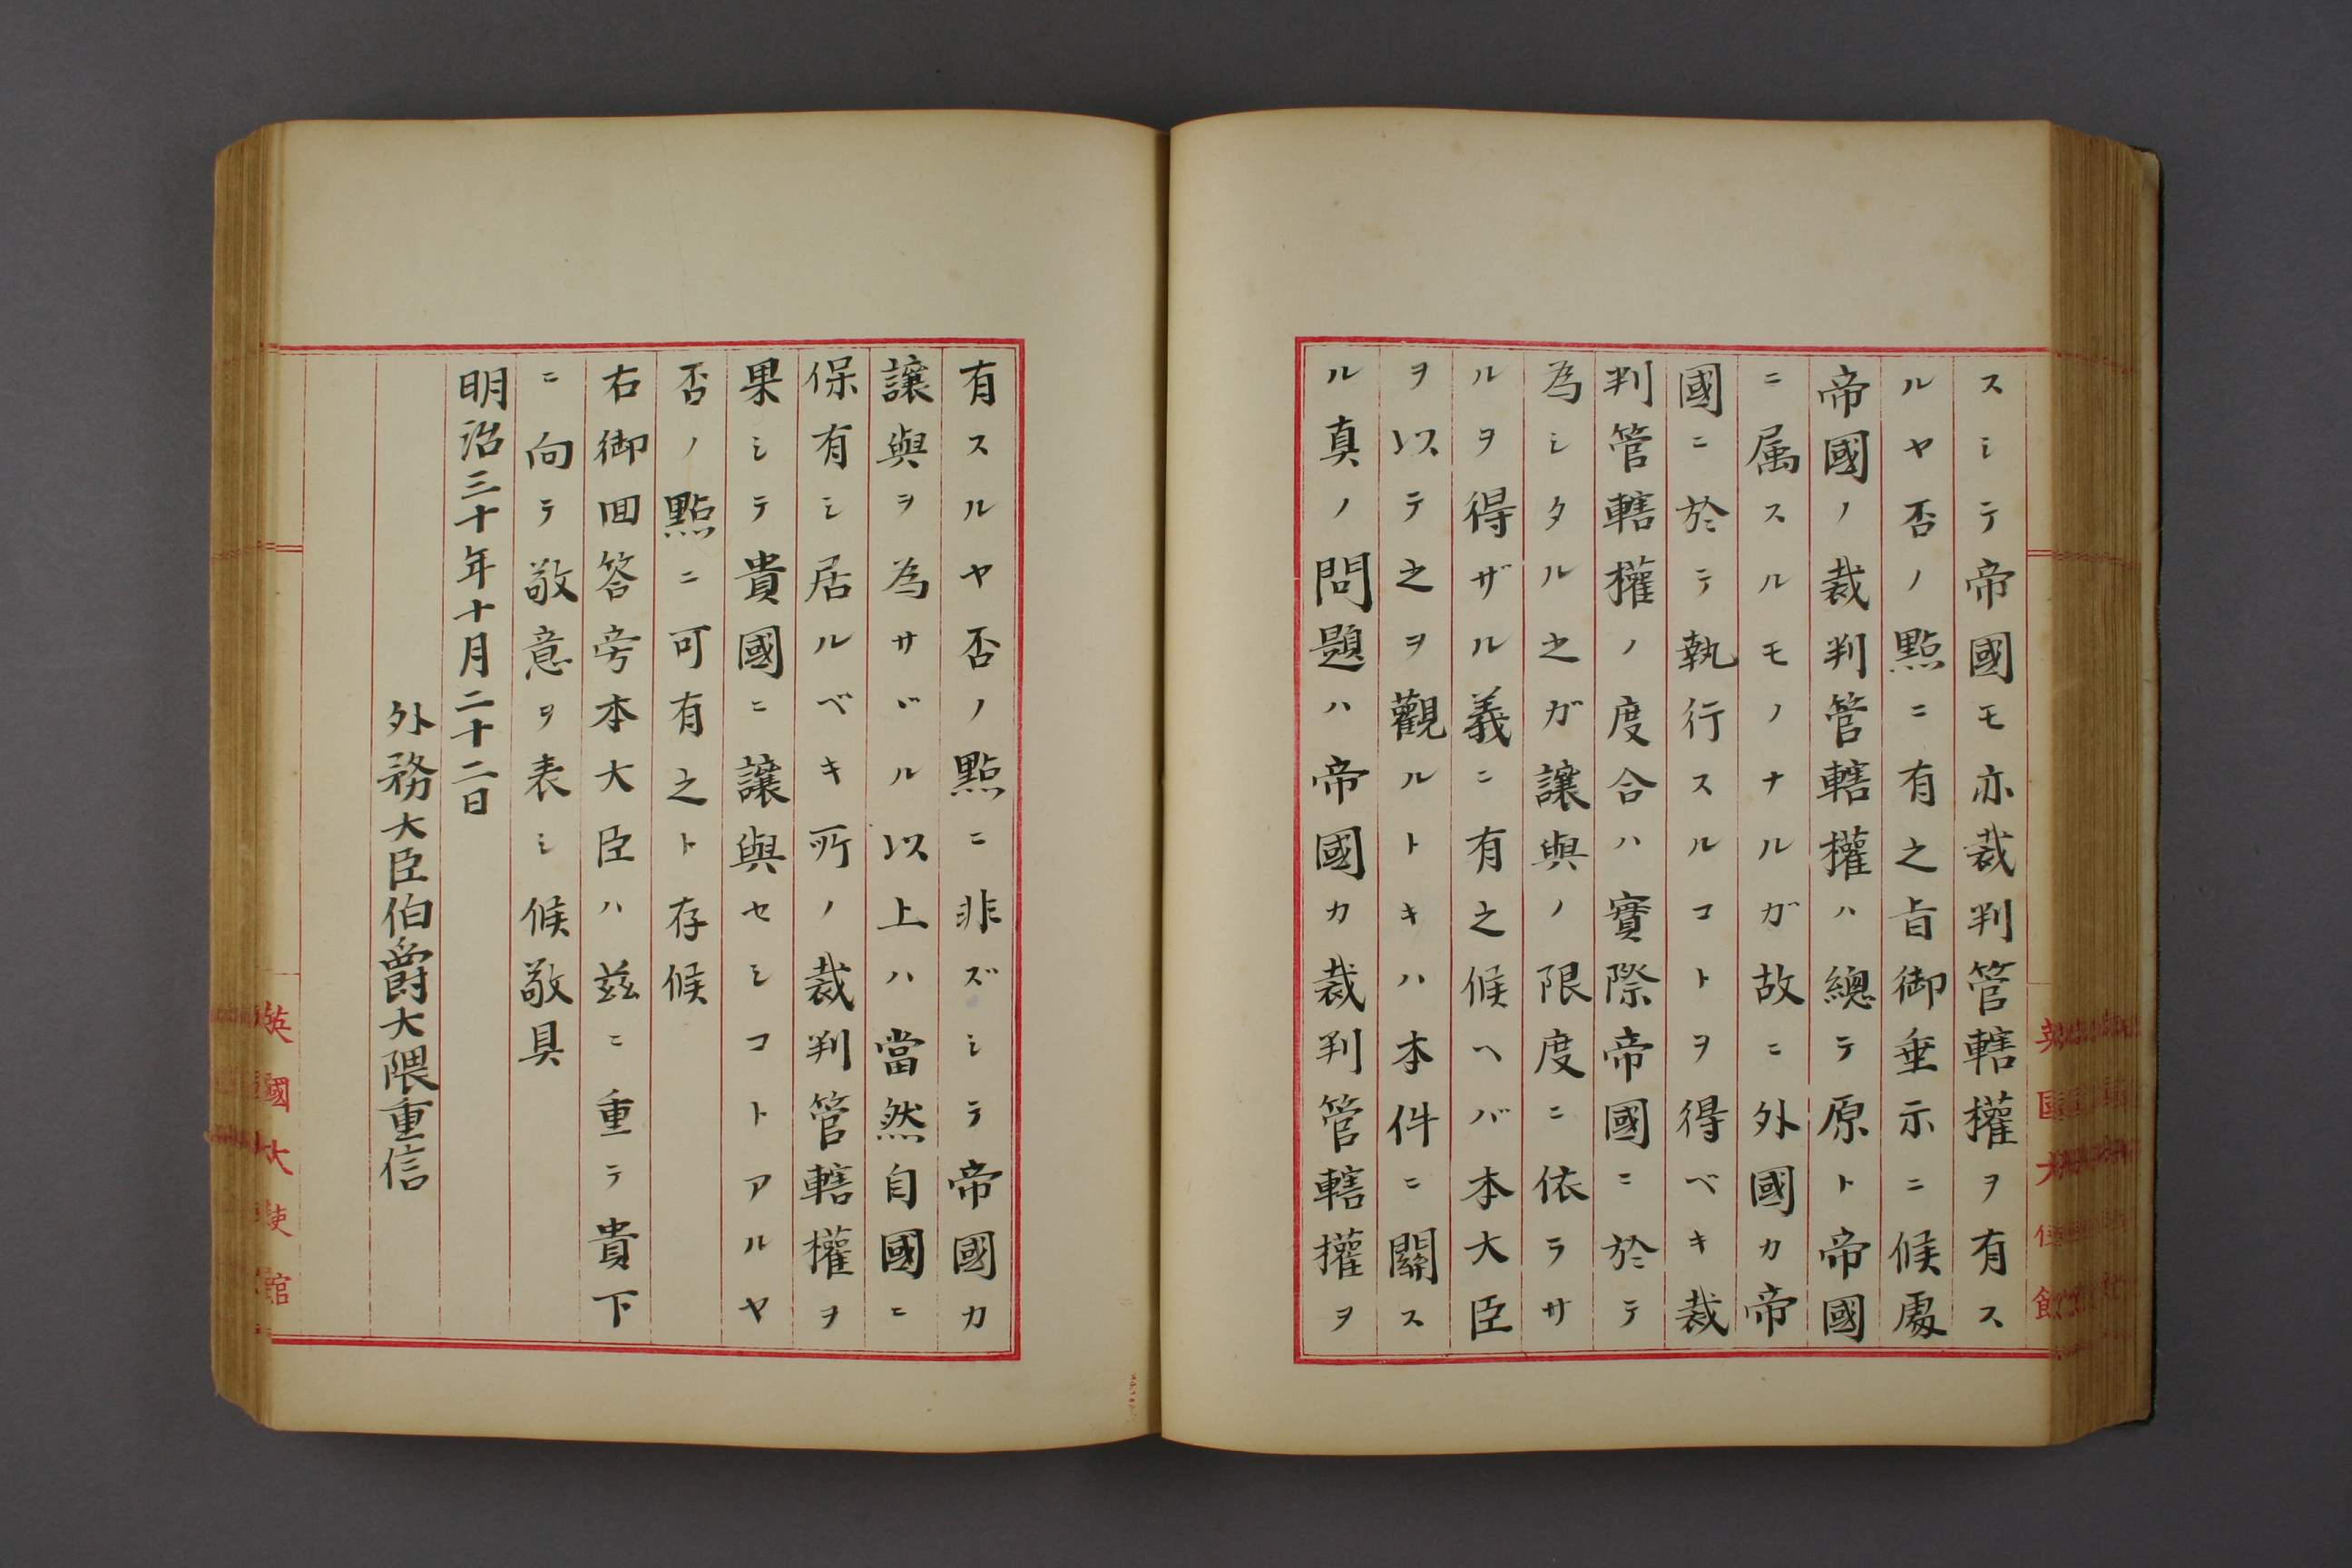 スシテ帝國モ亦裁判管轄權ヲ有ス
ルヤ否ノ點ニ有之旨御垂示ニ候處
帝國ノ裁判管轄權ハ總テ原ト帝國
ニ属スルモノナルガ故ニ外國カ帝
國ニ於テ執行スルコトヲ得ベキ裁
判管轄權ノ度合ハ實際帝國ニ於テ
為シタル之ガ讓與ノ限度ニ依ラサ
ルヲ得ザル義ニ有之候ヘバ本大臣
ヲ以テ之ヲ觀ルトキハ本件ニ關ス
ル真ノ問題ハ帝國カ裁判管轄權ヲ
有スルヤ否ノ點ニ非ズシテ帝國カ
讓與ヲ為サヾル以上ハ當然自國ニ
保有シ居ルベキ所ノ裁判管轄權ヲ
果シテ貴國ニ讓與セシコトアルヤ
否ノ點ニ可有之ト存候
右御回答旁本大臣ハ茲ニ重テ貴下
ニ向テ敬意ヲ表シ候敬具
明治三十年十月二十二日
外務大臣伯爵大隈重信
英國大使館